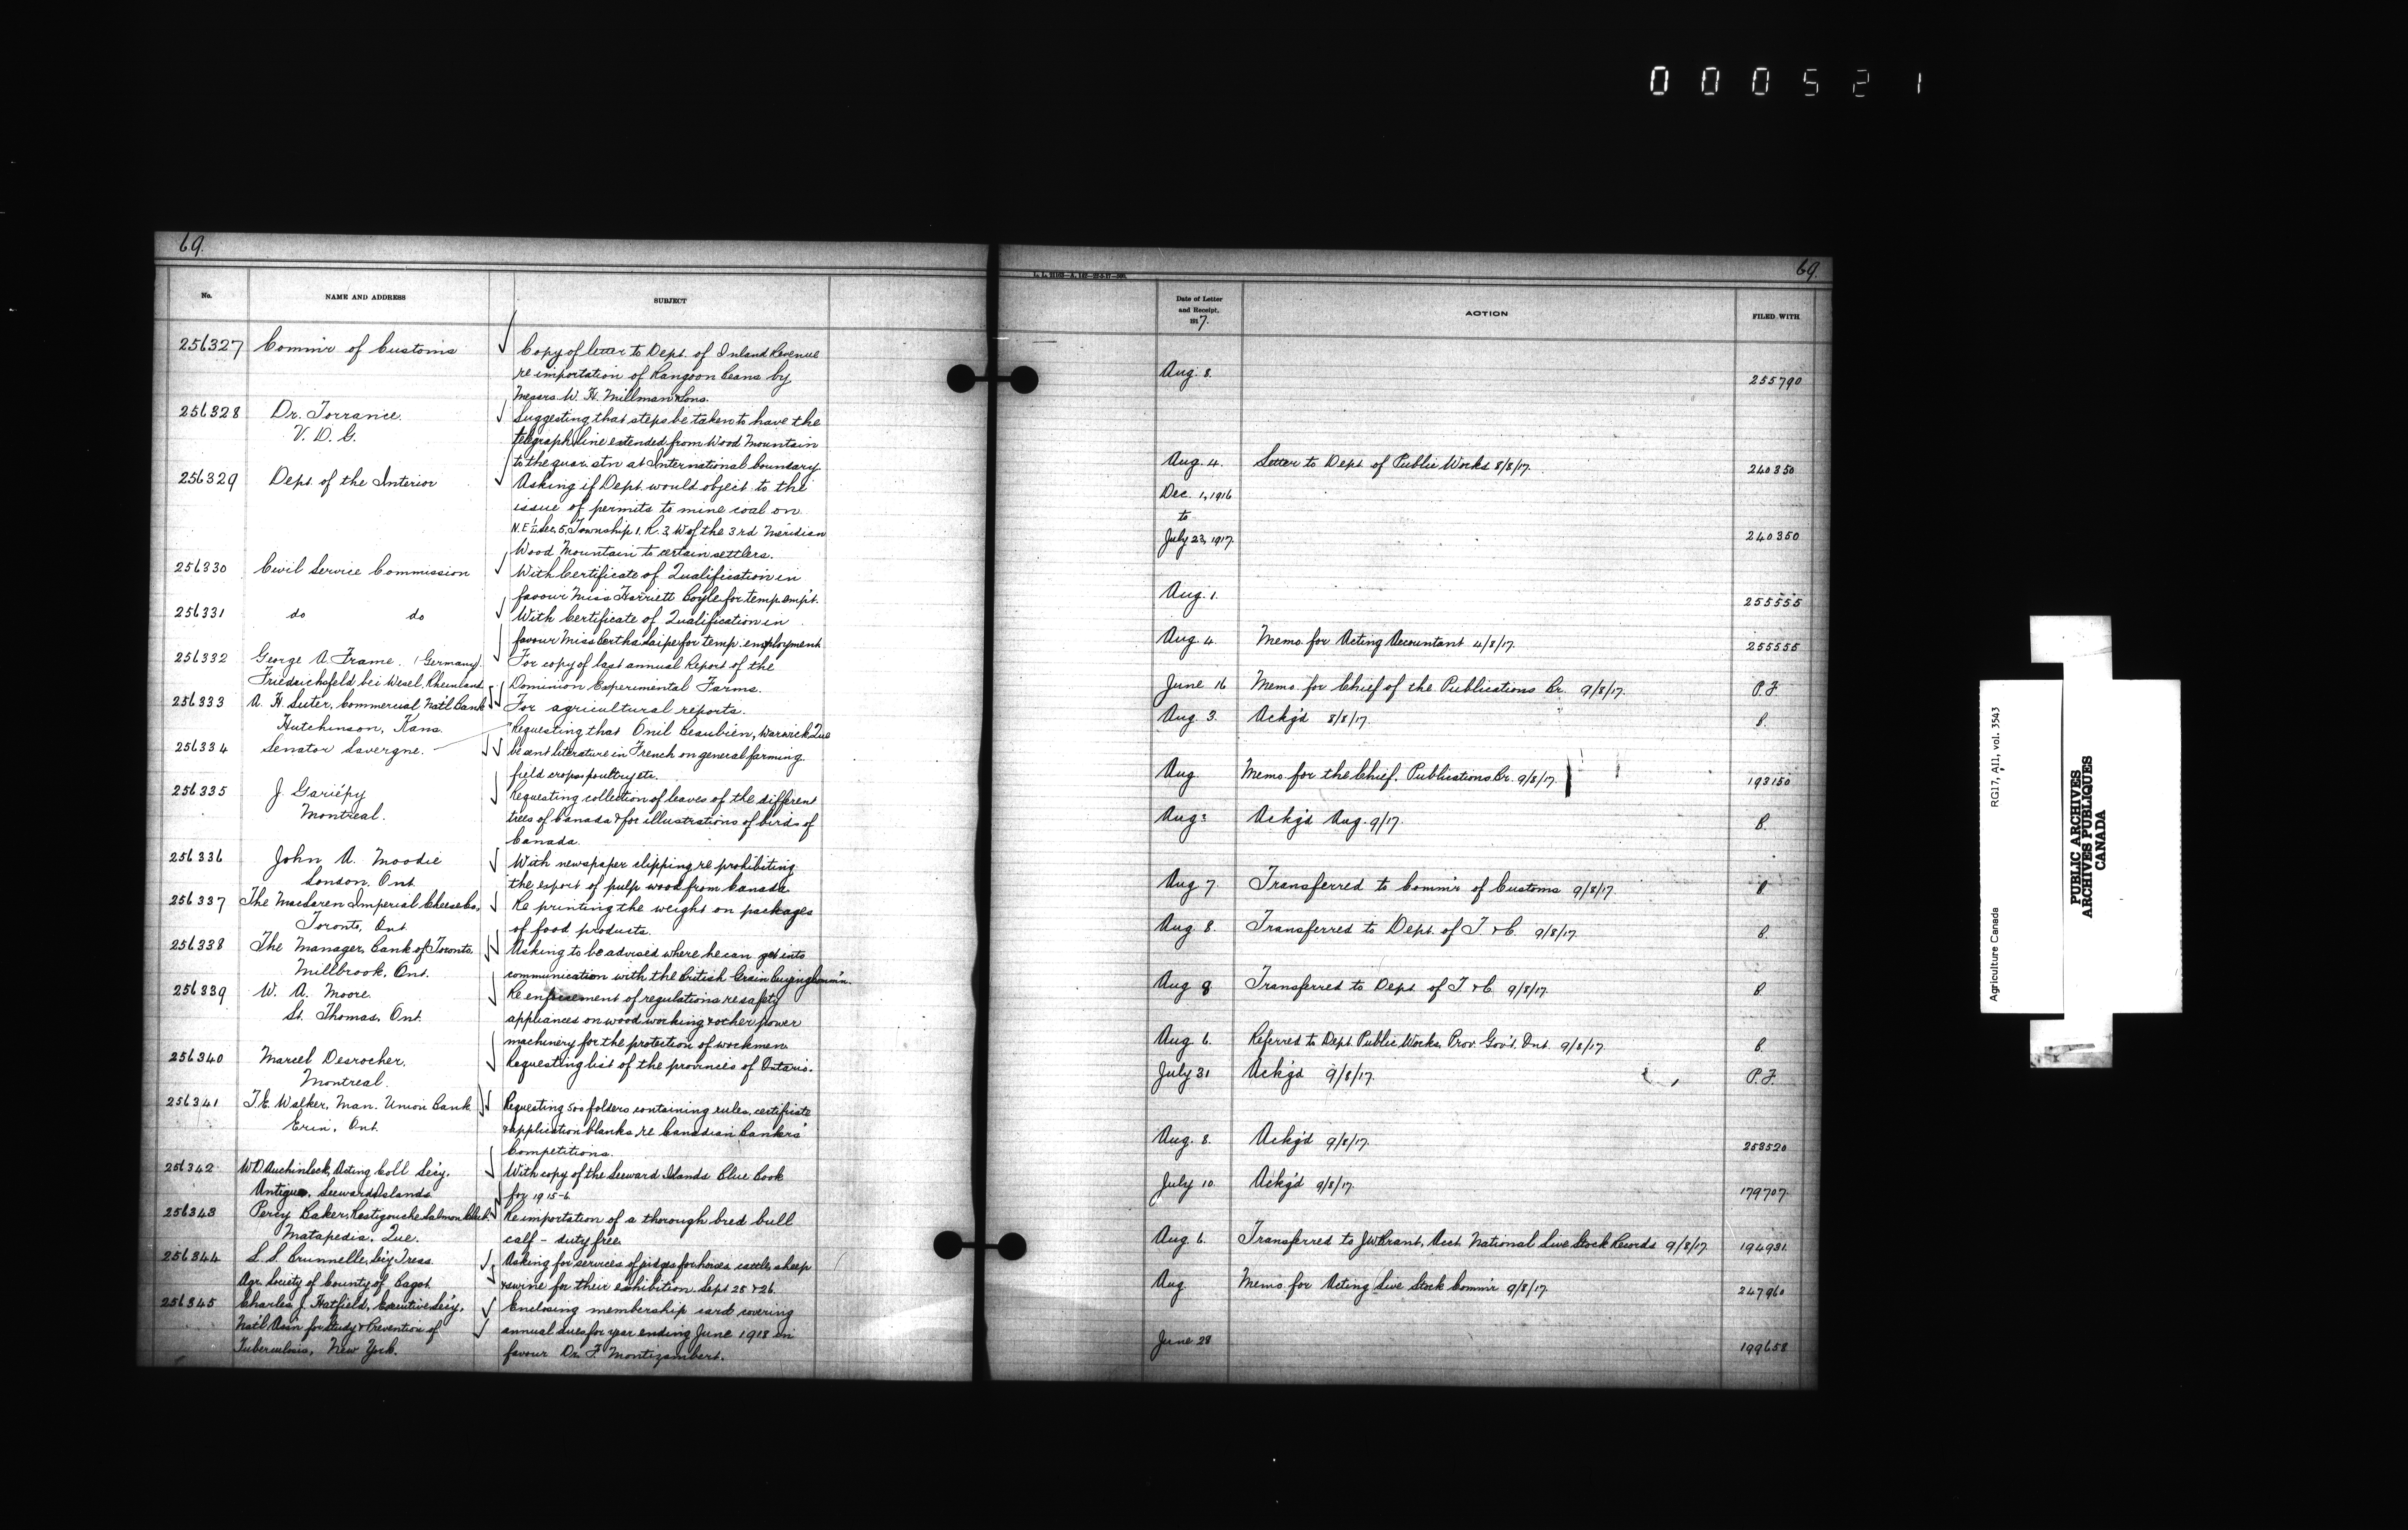 000521
69.
No.
NAME AND ADDRESS
SUBJECT
256327 Comm'r of Customs
Copy of letter to Dept. of Inland Revenue
re importation of Rangoon Beans by
Messrs W. H. Millman & Sons.
256328 Dr. Torrance.
V. D. G.
Suggesting that steps be taken to have the
telegraph line extended from Wood Mountain
to the quar. stn at International boundary
256329 Dept. of the Interior
Asking if Dept. would object to the
issue of permits to mine coal on
N.E. ¼ Sec. 5, Township 1, R. 3, W of the 3rd Meridian
Wood Mountain to certain settlers.
256330 Civil Service Commission
With Certificate of Qualification in
favour Miss Harriett Coyle for temp. emp't.
256331 do do
With Certificate of Qualification in
favour Miss Bertha Laipe for temp. employment
256332 George A. Frame. (Germany)
Friedrichsfeld bei Wesel, Rheinland
For copy of last annual Report of the
Dominion Experimental Farms.
256333 A. H. Suter, Commercial Nat'l Bank
Hutchinson, Kans.
For agricultural reports.
256334 Senator Lavergne.
Requesting that Onil Beaubien, Warwick Que
be sent literature in French on general farming.
field crops, poultry etc.
256335 J. Gariépy
Montreal.
Requesting collection of leaves of the different
trees of Canada & for illustrations of birds of
Canada.
256336 John A. Moodie
London, Ont.
With newspaper clipping re prohibiting
the export of pulp wood from Canada
256337 The MacLaren Imperial Cheese Co.
Toronto, Ont.
Re printing the weight on packages
of food products.
256338 The Manager, Bank of Toronto,
Millbrook, Ont.
Asking to be advised where he can get into
communication with the British Grain Buying Comm'n.
256339 W. A. Moore.
St. Thomas, Ont.
Re enforcement of regulations re safety
appliances on wood working & other power
machinery for the protection of workmen
256340 Marcel Desrocher.
Montreal.
Requesting list of the provinces of Ontario.
256341 T.E. Walker, Man. Union Bank
Erin, Ont.
Requesting 500 folders containing rules, certificate
& application blanks re Canadian Bankers'
Competitions.
256342 W.D. Auchinleck, Acting Col'l Sec'y.
Antigua, Leeward Islands
With copy of the Leeward Islands Blue Book
for 1915-6
256343 Percy Baker, Restigouche Salmon Club.
Matapedia, Que.
Re importation of a thorough bred bull
calf - duty free.
256344 S. S. Brunnelle, Sec'y Treas.
Agr. Society of County of Bagot
Asking for services of judges for horses, cattle, sheep
& swine for their exhibition Sept 25 & 26.
256345 Charles J. Hatfield, Executive Sec'y,
Nat'l Ass'n for Study & Prevention of
Tuberculosis, New York.
Enclosing membership card covering
annual dues for year ending June 1918 in
favour Dr. F. Montizambert.
69.
Date of Letter
and Receipt,
1917.
ACTION
FILED WITH
Aug. 8. 255790
Aug. 4. Letter to Dept. of Public Works 8/8/17. 240350
Dec. 1, 1916
to
July 23, 1917. 240350
Aug. 1. 255555
Aug 4 Memo. for Acting Accountant 4/8/17. 255555
June 16 Memo. for Chief of the Publications Br. 9/8/17. P.F.
Aug 3. Ackg'd 8/8/17. B.
Aug Memo. for the Chief, Publications Br. 9/8/17. 193150
Aug Ackg'd Aug. 9/17. B.
Aug 7. Transferred to Comm'r of Customs 9/8/17. B
Aug 8. Transferred to Dept. of T. & C. 9/8/17. B.
Aug 8 Transferred to Dept. of T & C. 9/8/17. B
Aug 6. Referred to Dept. Public Works, Prov. Gov't. Ont. 9/8/17. B.
July 31 Ackg'd 9/8/17. P.F.
Aug. 8. Ackg'd 9/8/17. 253520
July 10 Ackg'd 9/8/17. 179707
Aug 6. Transferred to J.W. Brant, Acct. National Live Stock Records 9/8/17 194931.
Aug Memo. for Acting Live Stock Comm'r 9/8/17. 247960
June 28 199658
Agriculture Canada RG17, AII, vol. 3543
PUBLIC ARCHIVES
ARCHIVES PUBLIQUES
CANADA